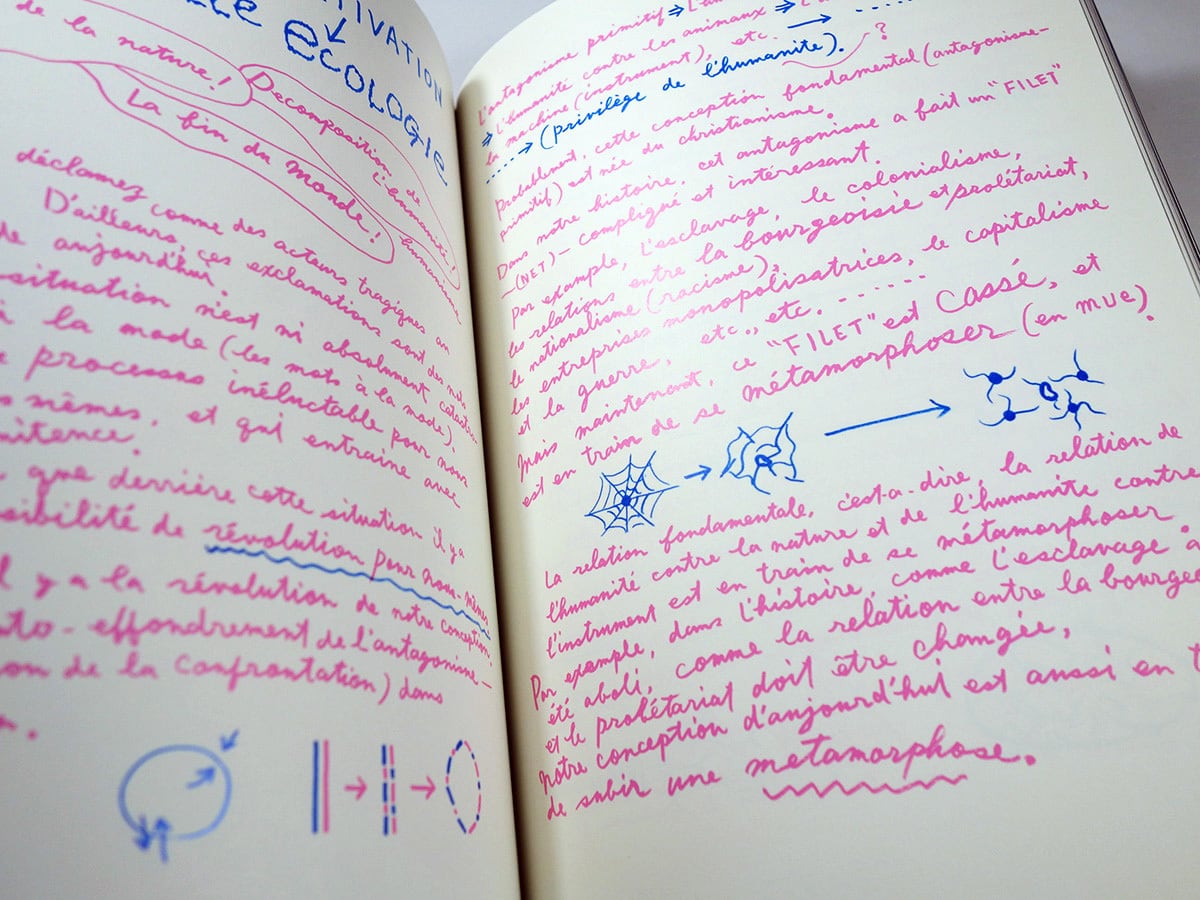 TIVATION
ECOLOGIE
de la nature!
Décomposition de l'humanité!
La fin du monde!
déclamez comme des acteurs tragiques au
D'ailleurs, ces exclamations sont des mots
de aujourd'hui.
situation n'est ni absolument
à la mode (les mots à la mode).
processus inéluctable pour nous
mêmes, et qui entraine avec
que derrière cette situation il y a
sibilité de révolution pour nous-mêmes
il y a la révolution de notre conception.
uto-effondrement de l'antagonisme-
ion de la confrontation) dans
L'antagonisme primitif ⇒
⇒ L'humanité contre les animaux ⇒
la machine (instrument), etc. → ......
....→ (privilège de l'humanite). ?
Probablement, cette conception fondamental (antagonisme-
primitif) est née du christianisme.
Dans notre histoire, cet antagonisme a fait un "FILET"
—(NET)— compliqué et intéressant.
Par example, l'esclavage, le colonialisme,
les relations entre la bourgeoisie et prolétariat,
le nationalisme (racisme),
les entreprises monopolisatrices, le capitalisme
et la guerre, etc., etc. ......
Mais maintenant, ce "FILET" est CASSÉ, et
est en train de se métamorphoser (en mue).
→ →
La relation fondamentale, c'est-a-dire, la relation de
l'humanité contre la nature et de l'humanite contre
l'instrument est en train de se métamorphoser
Par example, dans l'histoire, comme l'esclavage a
été aboli, comme la relation entre la bourgeoi
et le prolétariat doit être changée,
notre conception d'aujourd'hui est aussi en t
de subir une metamorphose.